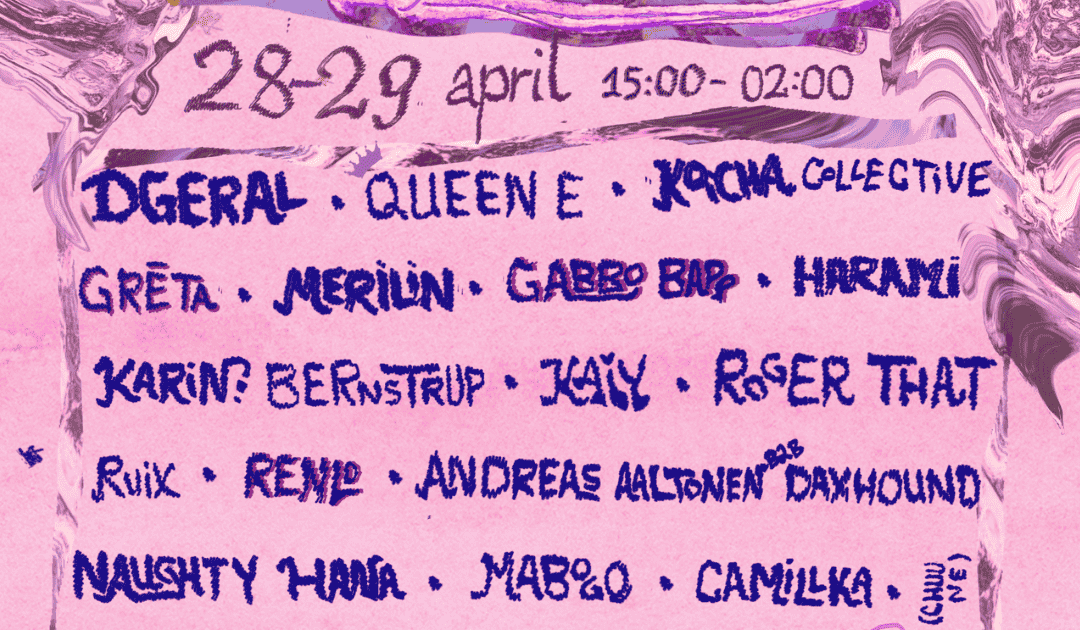 28-29 april 15:00-02:00
DGERAL • QUEEN E • KOCHA COLLECTIVE
GRĒTA • MERILIN • GABBO BAPP • HARAMi
KARiN? BERNSTRUP • KAiY • ROGER THAT
RUiX • RENLO • ANDREAS AALTONEN B2B DAXHOUND
NAUGHTY HANA • MABOGO • CAMiLLKA • (CHUUNE)